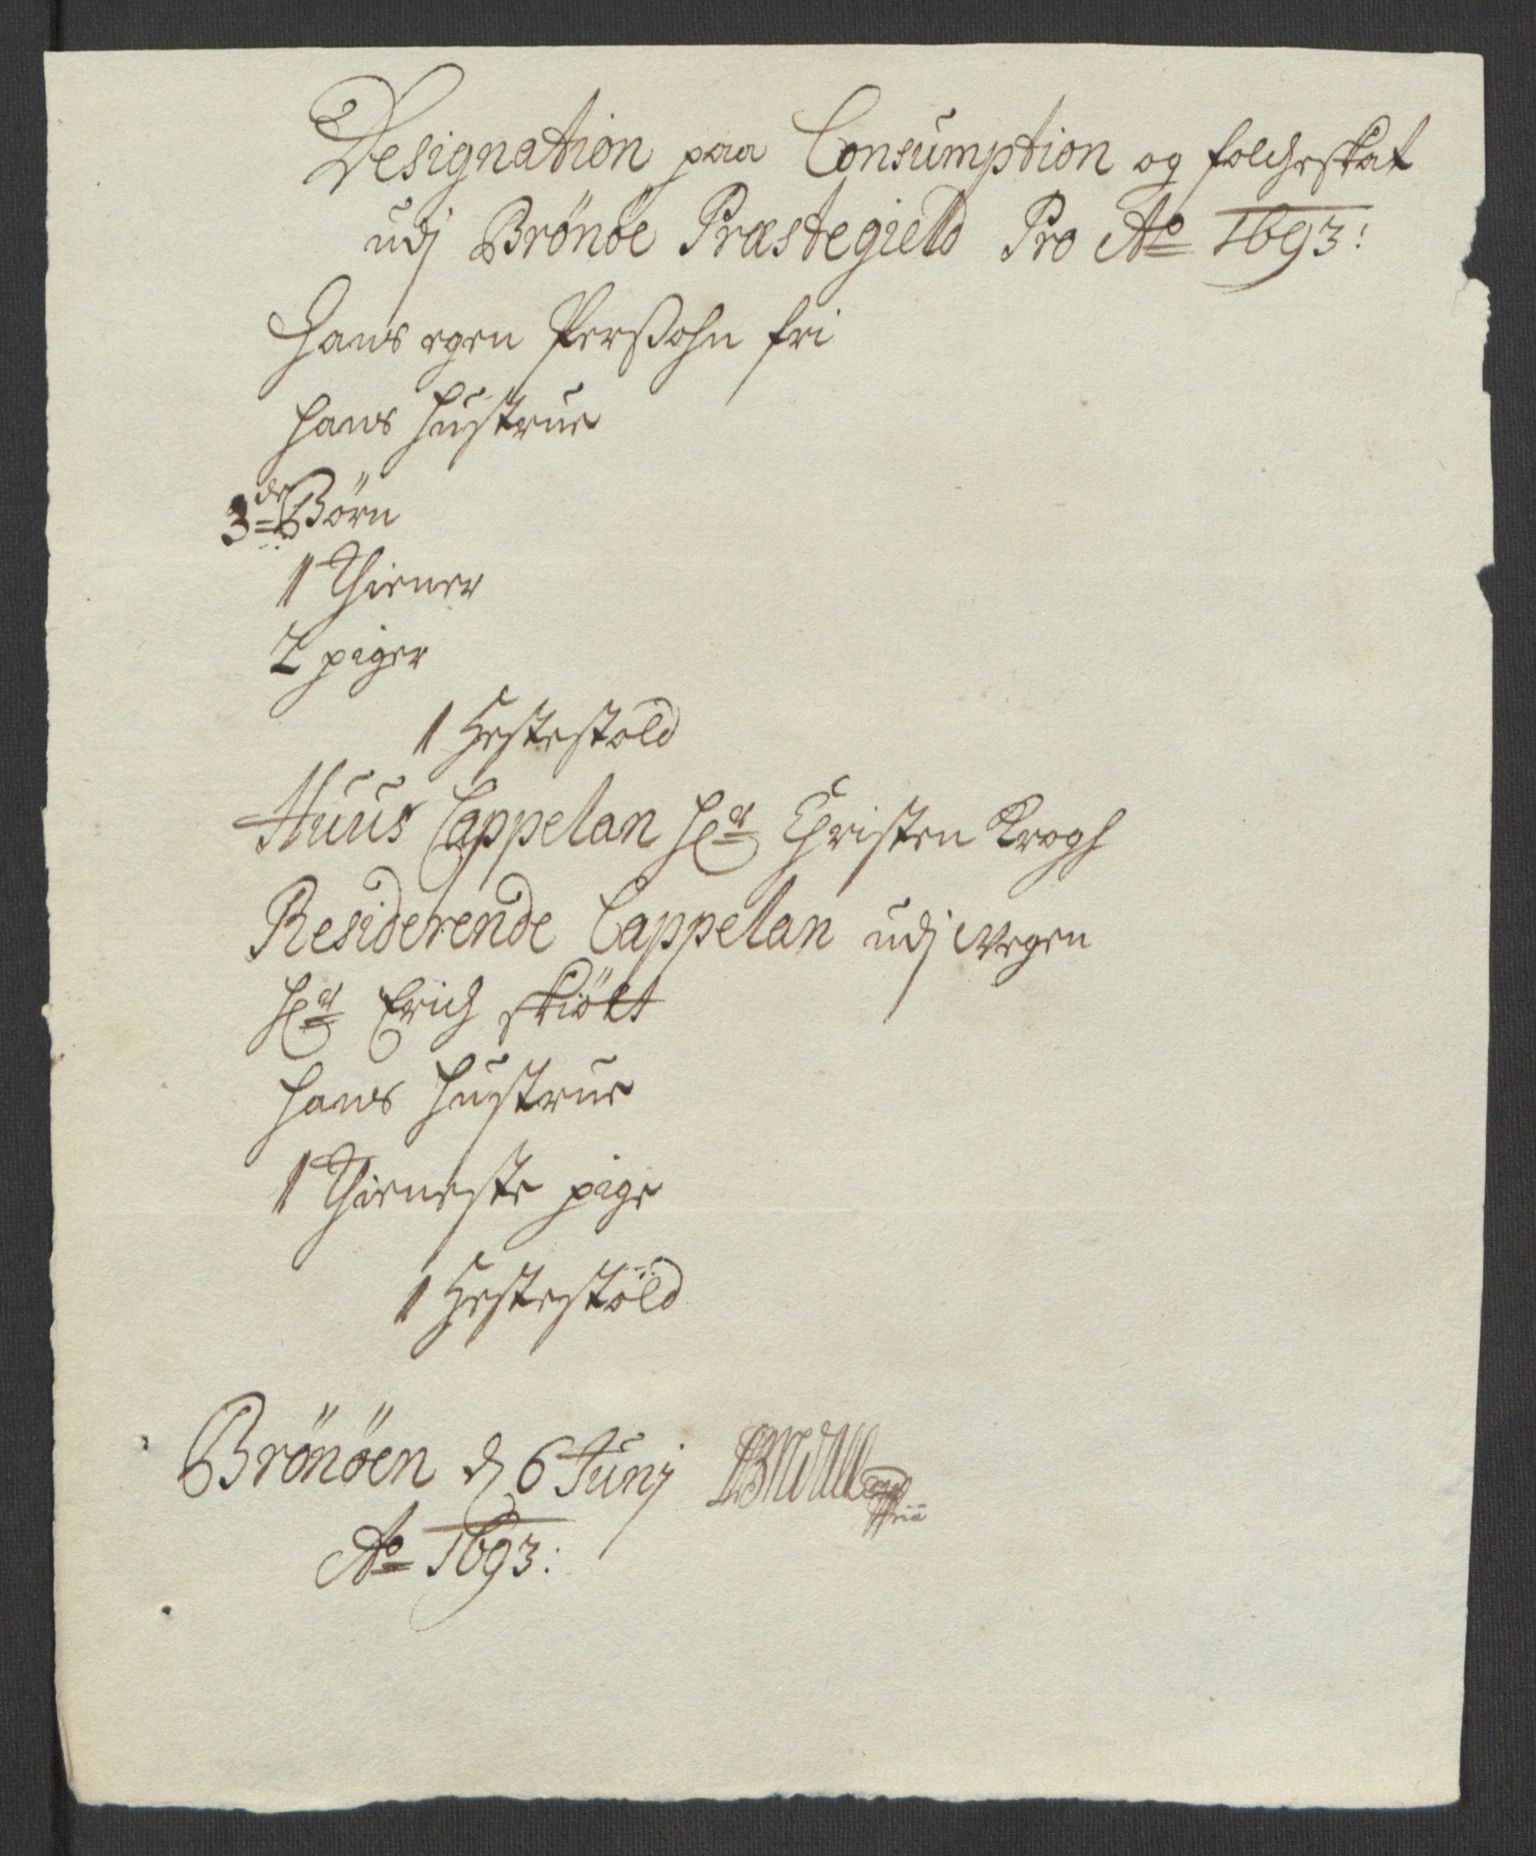 Designation paa Consumption og folcheskat
udj Brönöe Præstegield Pro Ao 1693:
Hans egen Perßohn fri
hans Hustrue
3de Börn
1 Thiener
2 piger
1 Hestestold
Huus Cappelan Hr Christen Krogh
Residerende Cappelan udj Wegen
Hr Erich Skiött
hans Hustrue
1 Thieneste pige
1 Hestestöld
Brönöen d 6 Junj
Ao 1693: